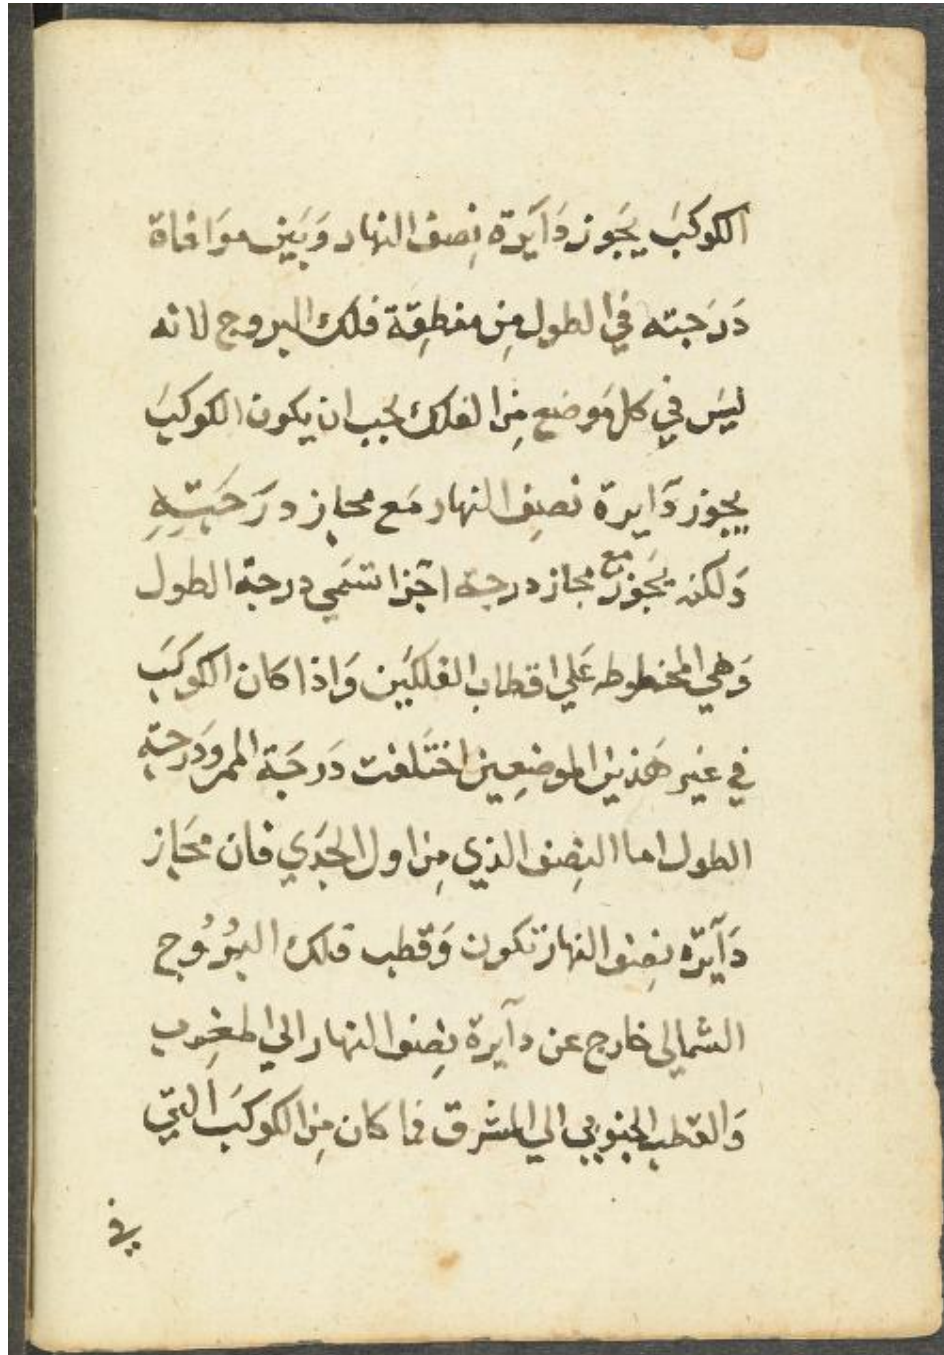 الكوكبَ يجَوز دَآيَرة نِصف النهار وَبَين موَافاة
دَرَجته في الطول مِن منطِقَة فلك البروج لانه
ليسَ في كل مَوضع مِن الفلك يجب ان يكون الكوكبَ
يجوز دَايرة نصِف النهار مَع مجاز درَجَتِهِ
وَلكنه يجَوز مع مجاز درجة اخرَا تسَمي درجة الطول
وَهي المخطوطه عَلي اقطاب الفلكَين وَاذا كان الكوكَبَ
في غير هَذين الموضِعين اختَلفت دَرجَة الممر وَدَرجة
الطول اما النِصف الذي مِن اول الجَدَي فان مَجَاز
دَآيَرَة نِصف النهار تكون وَقطب فلك البرُوُج
الشمالي خارج عن دآيرة نِصف النهار الي المغِرب
وَالقطب الجنوبي الي المشرق فما كان مِن الكوكَبَ التي
في